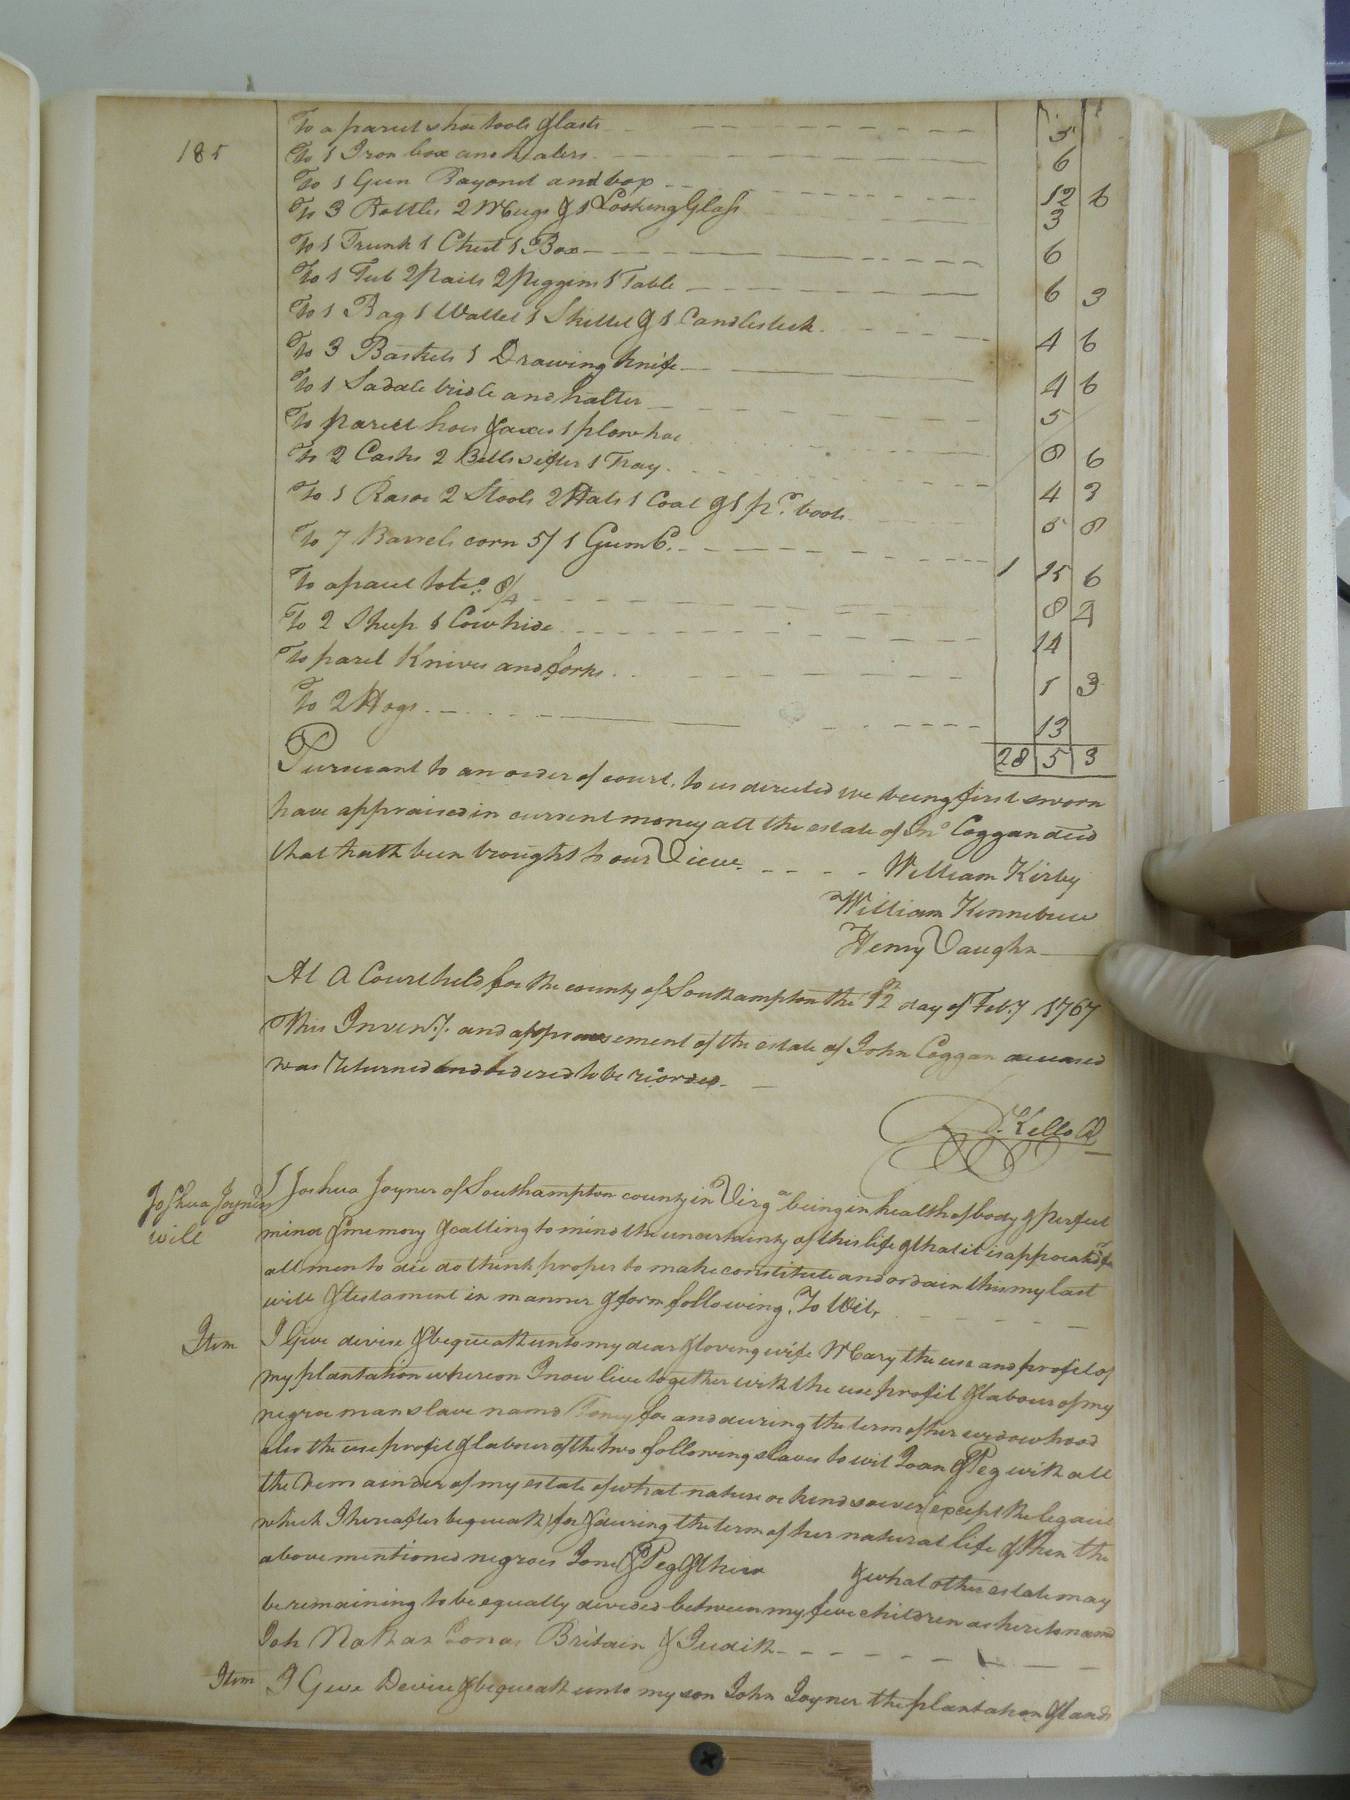 185
To a parcel shoe tools & lasts 5
To 1 Iron box and heaters 6
To 1 Gun Bayonet and box 12 6
To 3 Bottles 2 Mugs & 1 Looking Glass 3
To 1 Trunk 1 Chest 1 Box 6
To 1 Tub 2 Pails 2 Piggins 1 Table 6 3
To 1 Bag 1 Wallet 1 Skillet & 1 Candlestick 4 6
To 3 Baskets 1 Drawing knife 4 6
To 1 Sadale bridle and halter 5
To parcel hoes & axes 1 plow hoe 8 6
To 2 Casks 2 Bells sifter 1 Tray 4 3
To 1 Rasor 2 Stools 2 Hats 1 Coat & 1 pr. boots 5 8
To 7 Barrels corn 5/ 1 Gum 6. 1 15 6
To a parcel 8/4 8 4
To 2 Sheep 1 Cowhide 14
To parcl Knives and forks 1 3
To 2 Hogs 13
28 5 3
Pursuant to an order of court, to us directed we being first sworn
have appraised in current money all the estate of Jno Coggan decd
that hath been brought to our View.
William Kirby
William Kinnebrew
Henry Vaughn
At A Court held for the county of Southampton the 12th day of Feb.y 1767
This Inven.y. and appraisement of the estate of John Coggan deceased
was returned and ordered to be recorded.
R. Kello Cl
Joshua Joyners
will
I Joshua Joyner of Southampton county in Virga being in health of body & perfect
mind & memory & calling to mind the uncertainty of this life & that it is appointed for
all men to die do think proper to make constitute and ordain this my last
will & testament in manner & form following, To Wit,
Item
I Give devise & bequeath unto my dear & loving wife Mary the use and profit of
my plantation whereon I now live together with the use profit & labour of my
negroe man slave namd Toney for and during the term of her widowhood
also the use profit & labour of the two following slaves to wit Joan & Peg with all
the remainder of my estate of what nature or kind soever (except the legacie
which I hereafter bequeath) for & during the term of her natural life & then the
above mentioned negroes Jone & Peg & their & what other estate may
be remaining to be equally devided between my five children as hereto namd
Joh Nathan Jonas Britain & Judith
Item
I Give Devise & bequeath unto my son John Joyner the plantation & lands